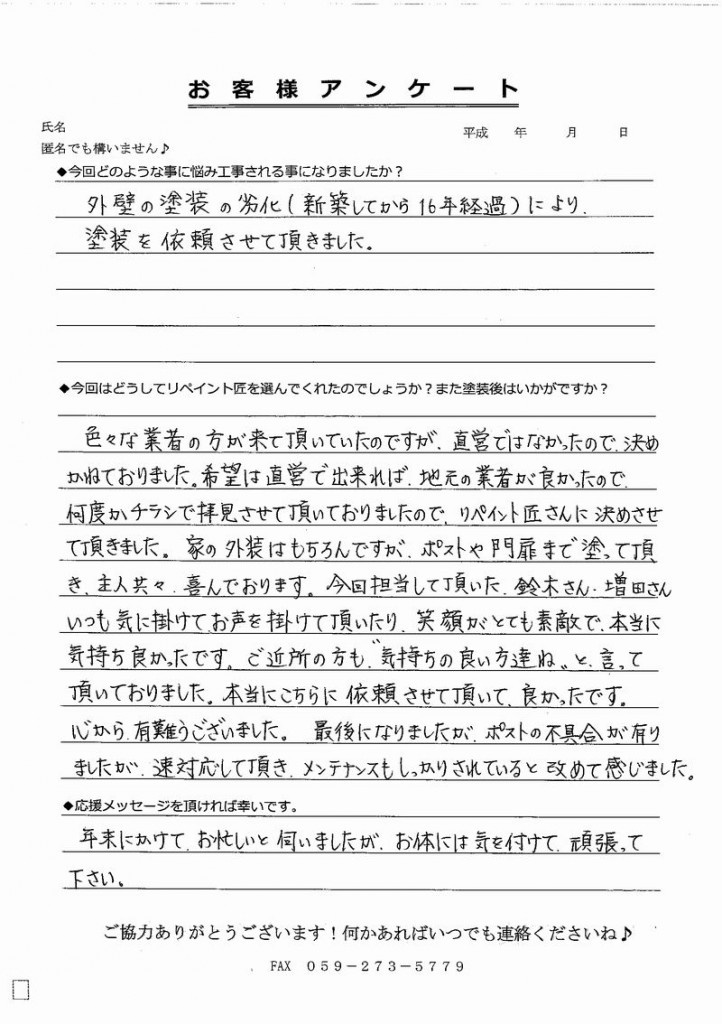 お客様アンケート
氏名
平成　年　　月　　日
匿名でも構いません♪
◆今回どのような事に悩み工事される事になりましたか？
外壁の塗装の劣化(新築してから16年経過)により、
塗装を依頼させて頂きました。
◆今回はどうしてリペイント匠を選んでくれたのでしょうか？また塗装後はいかがですか？
色々な業者の方が来て頂いていたのですが、直営ではなかったので、決め
かねておりました。希望は直営で出来れば、地元の業者が良かったので、
何度かチラシで拝見させて頂いておりましたので、リペイント匠さんに決めさせ
て頂きました。家の外装はもちろんですが、ポストや門扉まで塗って頂
き、主人共々、喜んでおります。今回担当して頂いた、鈴木さん・増田さん
いつも気に掛けてお声を掛けて頂いたり、笑顔がとても素敵で、本当に
気持ち良かったです。ご近所の方も〝気持ちの良い方達ね〟と、言って
頂いておりました。本当にこちらに依頼させて頂いて、良かったです。
心から、有難うございました。 最後になりましたが、ポストの不具合が有り
ましたが、速対応して頂き、メンテナンスもしっかりされていると改めて感じました。
◆応援メッセージを頂ければ幸いです。
年末にかけて、お忙しいと伺いましたが、お体には気を付けて、頑張って
下さい。
ご協力ありがとうございます！何かあればいつでも連絡くださいね♪
FAX 059－273－5779